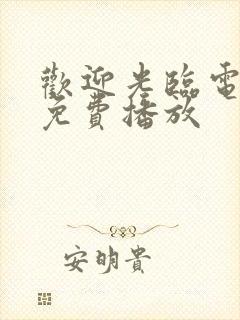 歡迎光臨電
免費播放
安明貴